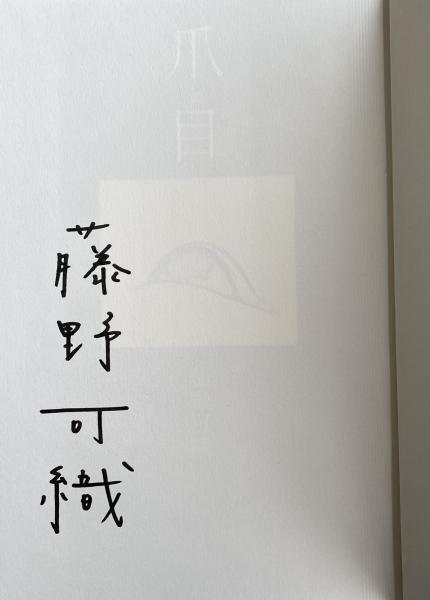 爪目
藤野可織